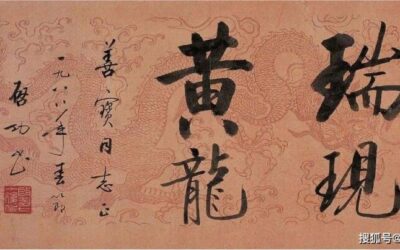 瑞現
黄龍
善寶同志正
一九八八年春節
啓功書
搜狐号@